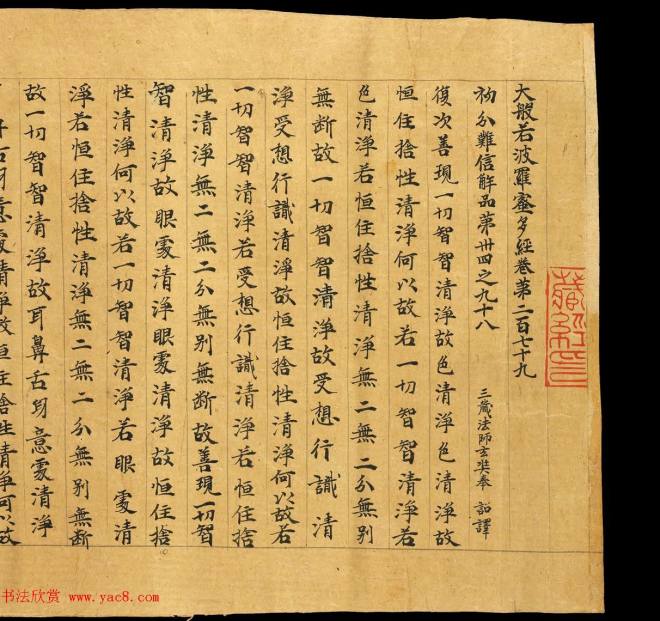 大般若波羅蜜多經卷第二百七十九
初分難信解品第卅四之九十八
三藏法師玄奘奉 詔譯
復次善現一切智智清淨故色清淨色清淨故
恒住捨性清淨何以故若一切智智清淨若
色清淨若恒住捨性清淨無二無二分無別
無斷故一切智智清淨故受想行識清
淨受想行識清淨故恒住捨性清淨何以故若
一切智智清淨若受想行識清淨若恒住捨
性清淨無二無二分無別無斷故善現一切智
智清淨故眼處清淨眼處清淨故恒住捨
性清淨何以故若一切智智清淨若眼處清
淨若恒住捨性清淨無二無二分無別無斷
故一切智智清淨故耳鼻舌身意處清淨
耳鼻舌身意處清淨故恒住捨性清淨何以故
藏經印
书法欣赏 www.yac8.com